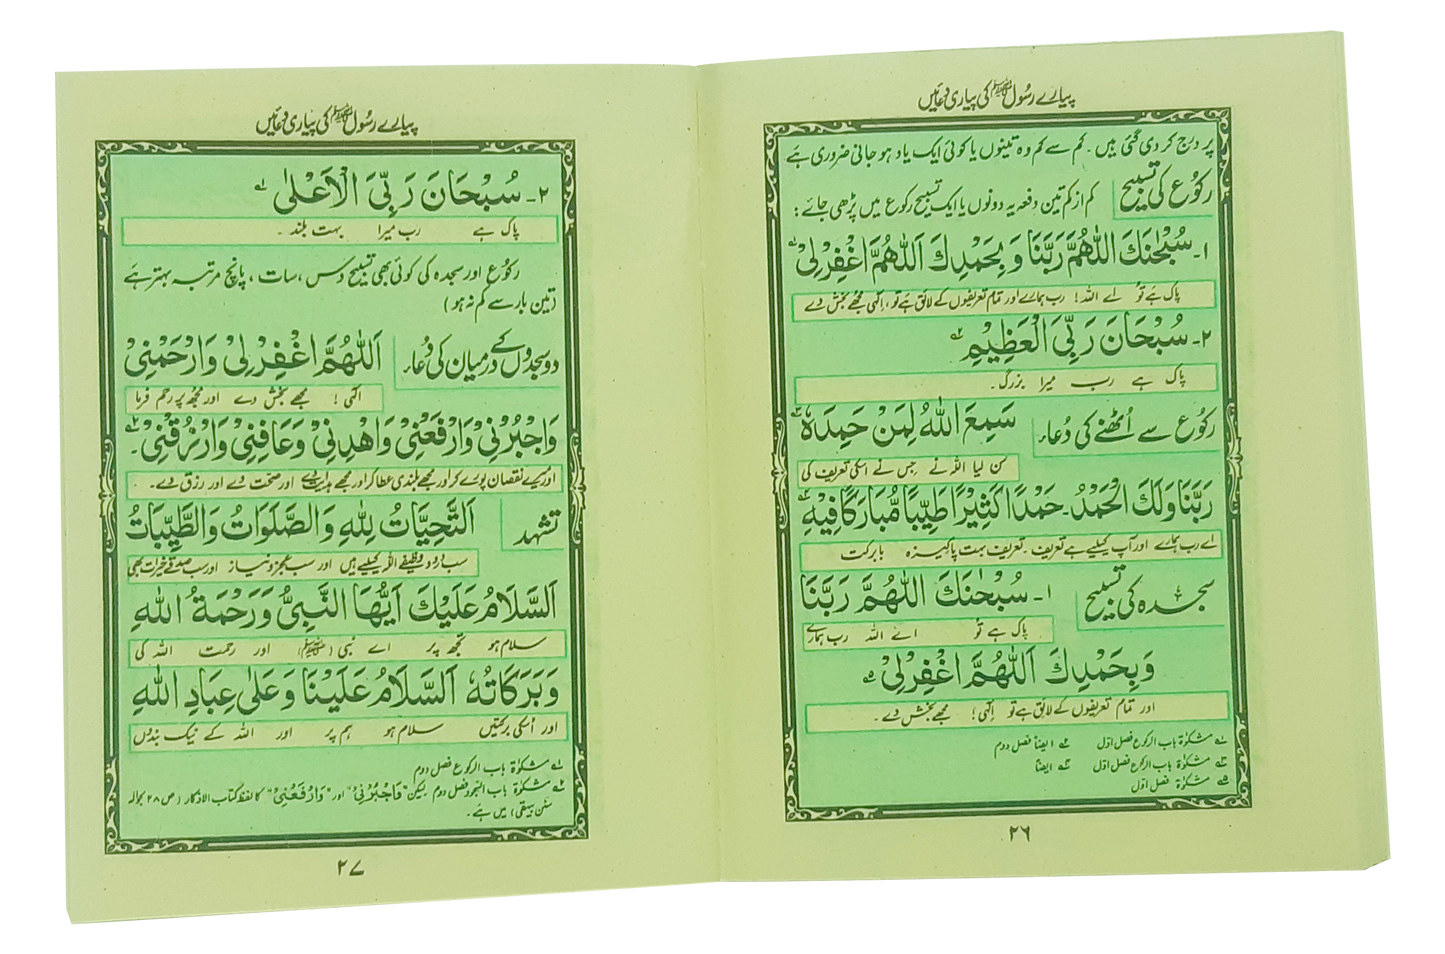 پیارے رسُول ﷺ کی پیاری دُعائیں
پر درج کر دی گئی ہیں۔ کم سے کم وہ تینوں یا کوئی ایک یاد ہو جانی ضروری ہے
رکوُع کی تسبیح کم از کم تین دفعہ یہ دونوں یا ایک تسبیح رکوع میں پڑھی جائے:
۱۔ سُبْحٰنَكَ اللّٰهُمَّ رَبَّنَا وَ بِحَمْدِكَ اَللّٰهُمَّ اغْفِرْلِیْ ؎۱
پاک ہے توُ اے اللہ! رب ہمارے اور تمام تعریفوں کے لائق ہے تو، اِلٰہی مُجھے بخش دے
۲۔ سُبْحَانَ رَبِّیَ الْعَظِیْمِ ؎۲
پاک ہے رب میرا بزرگ۔
رکوُع سے اُٹھنے کی دُعاء سَمِعَ اللّٰهُ لِمَنْ حَمِدَهٗ ؎۳
سن لیا اللہ نے جس نے اسکی تعریف کی
رَبَّنَا وَلَكَ الْحَمْدُ۔ حَمْدًا كَثِيْرًا طَيِّبًا مُّبَارَكًا فِيْهِ ؎۴
اے رب ہمارے اور آپ کیلیے ہے تعریف۔ تعریف بہت پاکیزہ بابرکت
سجدہ کی تسبیح ۱۔ سُبْحٰنَكَ اللّٰهُمَّ رَبَّنَا
پاک ہے توُ اے اللہ رب ہمارے
وَبِحَمْدِكَ اَللّٰهُمَّ اغْفِرْلِیْ ؎۵
اور تمام تعریفوں کے لائق ہے تو اِلٰہی! مجھے بخش دے۔
؎۱ مشکوٰۃ باب الرکوع فصل اوّل ؎۲ ایضاً فصل دوم
؎۳ مشکوٰۃ باب الرکوع فصل اوّل ؎۴ ایضاً
؎۵ مشکوٰۃ فصل اوّل
۲۶
پیارے رسُول ﷺ کی پیاری دُعائیں
۲۔ سُبْحَانَ رَبِّیَ الْاَعْلٰی ؎۱
پاک ہے رب میرا بہت بلند۔
رکوُع اور سجدہ کی کوئی بھی تسبیح دس، سات، پانچ مرتبہ بہتر ہے
(تین بار سے کم نہ ہو)
دو سجدوں کے درمیان کی دُعاء اَللّٰهُمَّ اغْفِرْلِیْ وَارْحَمْنِیْ
الٰہی! مجھے بخش دے اور مجھ پر رحم فرما
وَاجْبُرْنِیْ وَارْفَعْنِیْ وَاهْدِنِیْ وَعَافِنِیْ وَارْزُقْنِیْ۔ ؎۲
اور میرے نقصان پورے کر اور مجھے بلندی عطا کر اور مجھے ہدایت دے اور صحّت دے اور رزق دے۔
تشہد اَلتَّحِيَّاتُ لِلّٰهِ وَالصَّلَوَاتُ وَالطَّيِّبَاتُ
سب درود وظیفے اللہ کیلیے ہیں اور سب عجز و نیاز اور سب صدقے خیرات بھی
اَلسَّلَامُ عَلَيْكَ اَيُّهَا النَّبِیُّ وَرَحْمَةُ اللّٰهِ
سلام ہو تجھ پر اے نبی (ﷺ) اور رحمت اللہ کی
وَبَرَكَاتُهٗ اَلسَّلَامُ عَلَيْنَا وَعَلٰی عِبَادِ اللّٰهِ
اور اُسکی برکتیں سلام ہو ہم پر اور اللہ کے نیک بندوں
؎۱ مشکوٰۃ باب الرکوع فصل دوم
؎۲ مشکوٰۃ باب السجود فصل دوم لیکن "وَاجْبُرْنِیْ" اور "وَارْفَعْنِیْ" کا لفظ کتاب الاذکار (ص ۲۸ بحوالہ
سنن بیہقی) میں ہے۔
۲۷